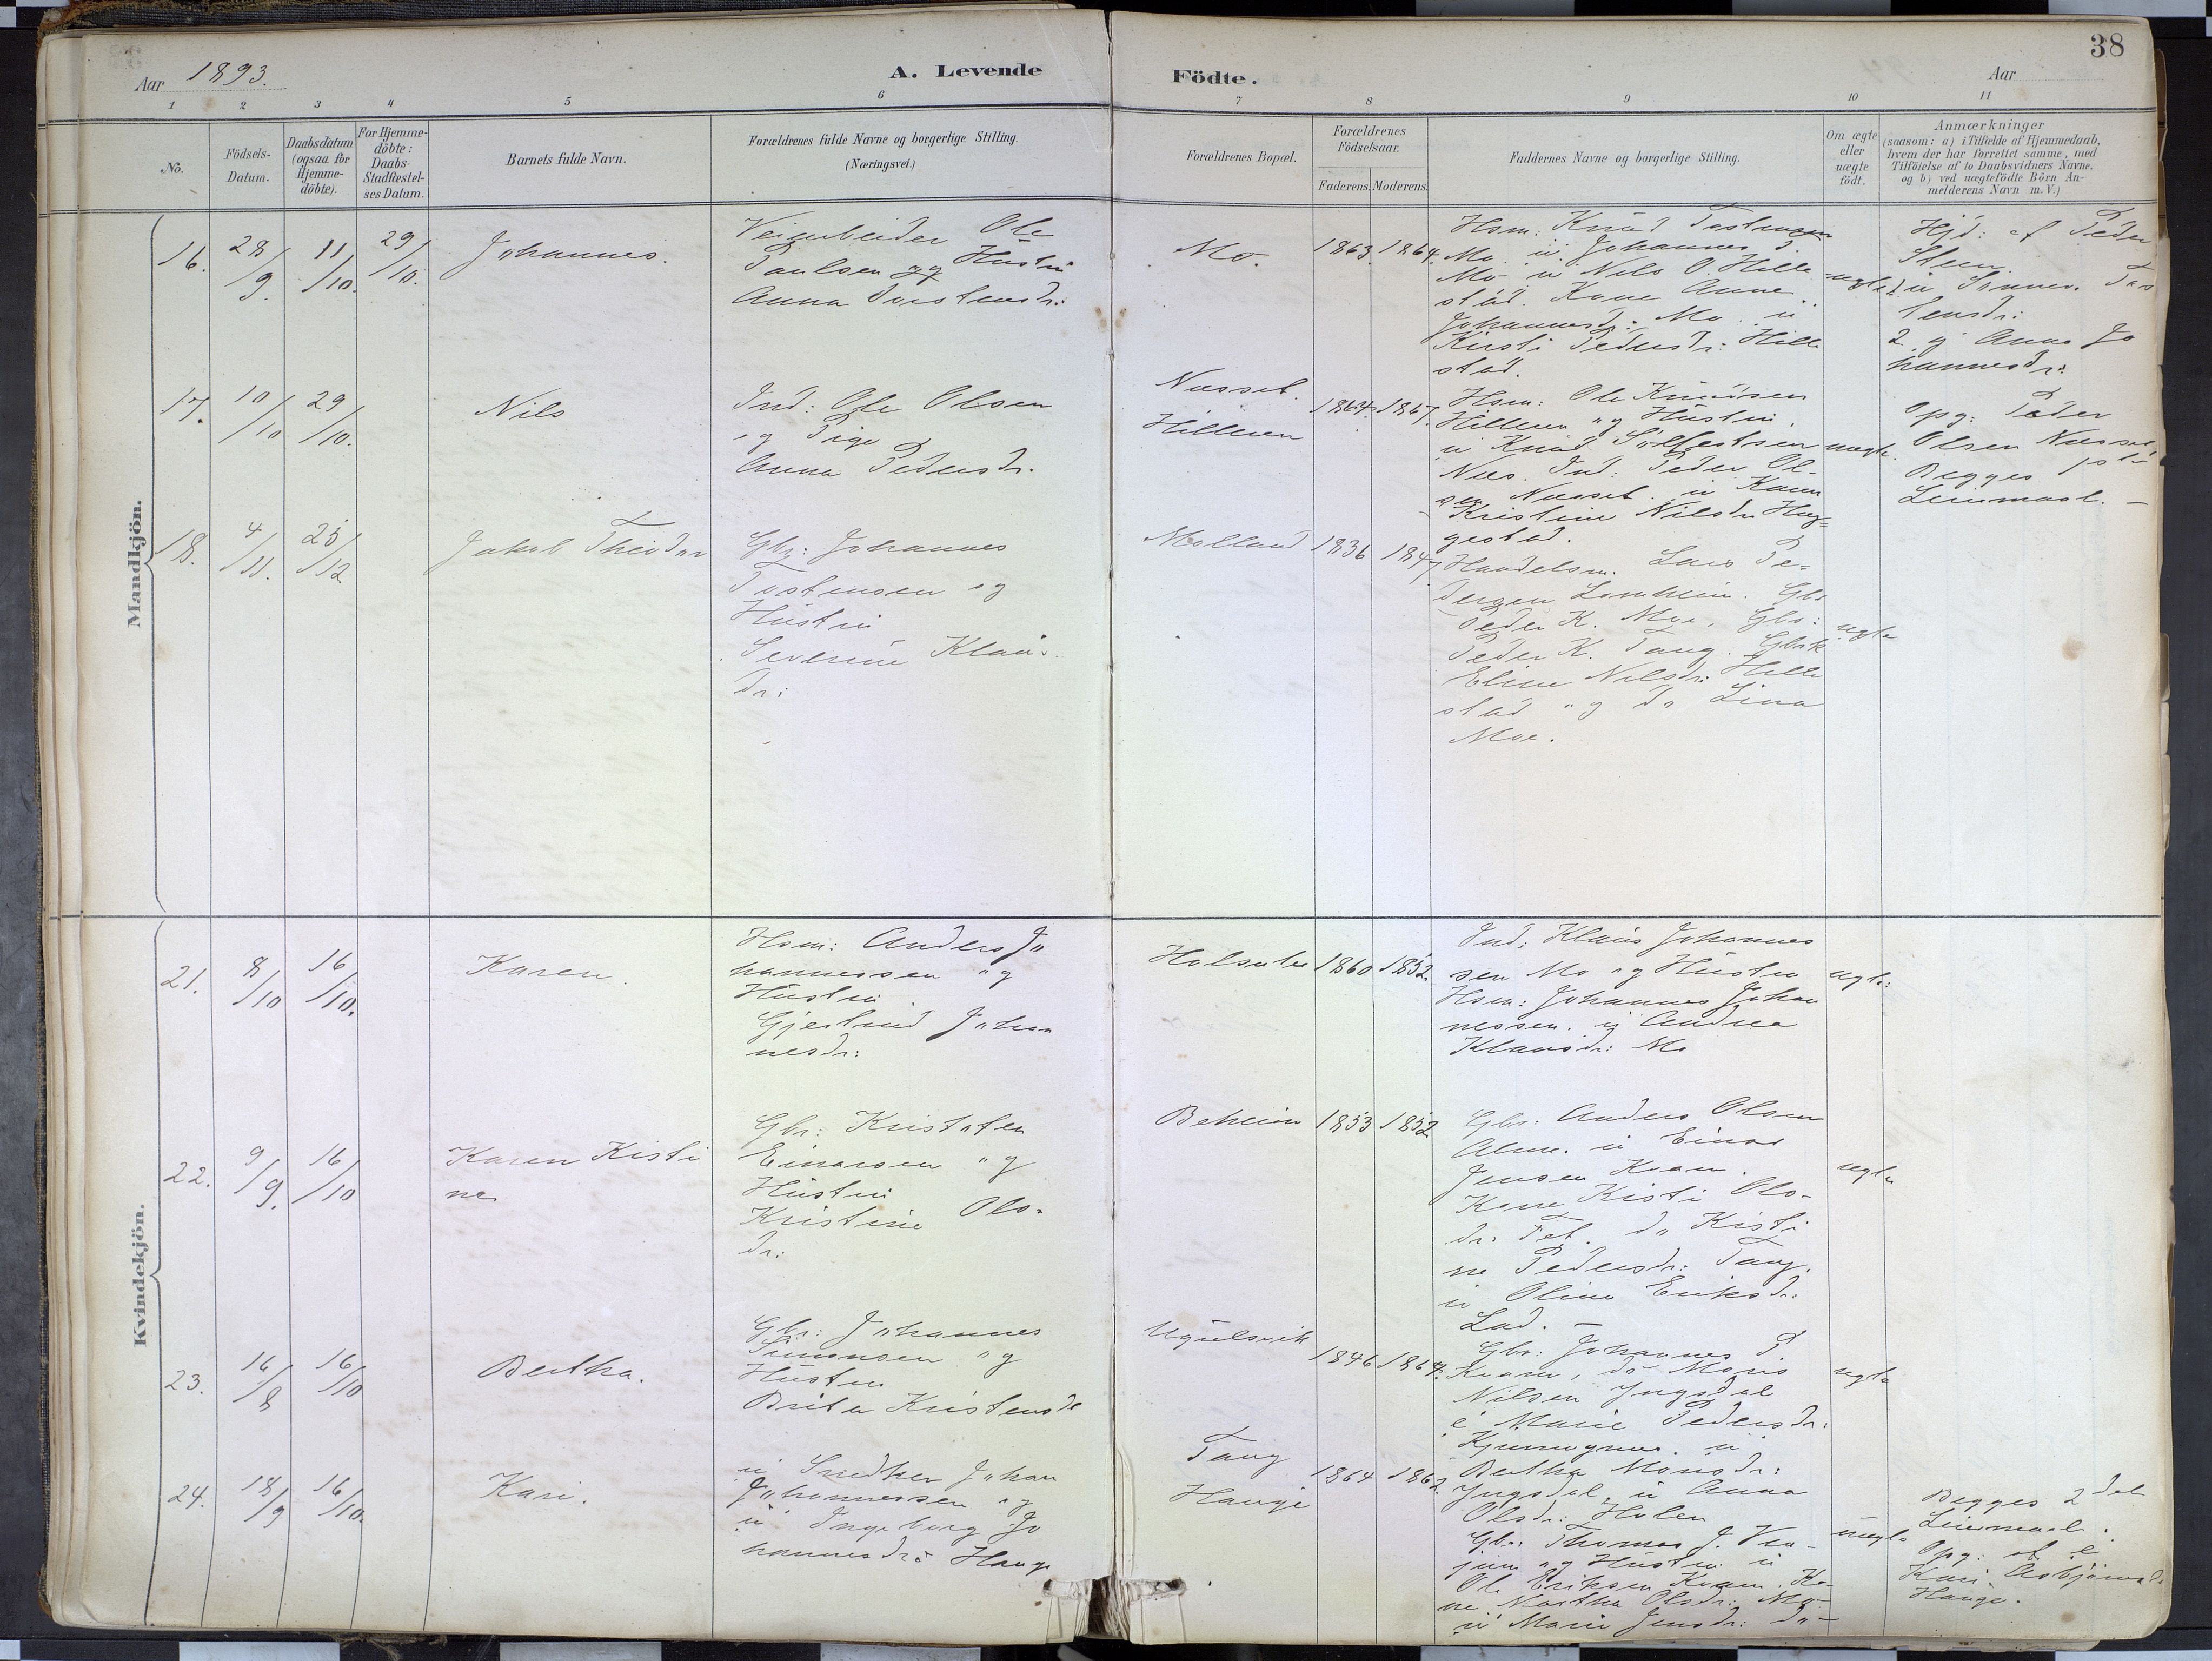 38
Aar 1893.
A. Levende Födte.
Aar
1 2 3 4 5 6 7 8 9 10 11
No.
Födsels-
Datum.
Daabsdatum
(ogsaa for
Hjemme-
döbte).
For Hjemme-
döbte:
Daabs-
Stadfæstel-
ses Datum.
Barnets fulde Navn.
Forældrenes fulde Navne og borgerlige Stilling.
(Næringsvei.)
Forældrenes Bopæl.
Forældrenes
Födselsaar.
Faderens. Moderens.
Faddernes Navne og borgerlige Stilling.
Om ægte
eller
uægte
födt.
Anmærkninger
(saasom: a) i Tilfælde af Hjemmedaab,
hvem der har forrettet samme, med
Tilföielse af to Daabsvidners Navne.
og b) ved uægtefödte Börn An-
melderens Navn m.V.)
Mandkjön.
16.
28/9.
11/10.
29/10.
Johannes.
Veiarbeider Ole
Paulsen og Hustru
Anna Torstensdr:
Mo.
1863. 1864.
Hsm: Knud Tostensen
Mo. u. Johannes J.
Mo u Nils O. Hille
stad. Kone Anne
Johannesd: Mo. u
Kirsti Pedersdr: Hille
stad.
ægte
Hjd: af Peder
Steen.
2 g Anna Jo
hannesdr:
17.
10/10
29/10.
Nils
Ind: Ole Olsen
og Pige
Anna Pedersdr.
Næsset.
Hilleren
1864. 1867.
Hsm: Ole Knudsen
Hilleren og Hustru.
u Knud Sjelfestsen
Næs. Ind. Peder Ol-
sen Næsset. u Karen
Kristine Nilsdr Hug=
gestad.
uægte.
Opg: Peder
Olsen Næsset
Begges 1ste
Leiermaal. -
18.
4/11.
25/12
Jakob Theodor
Gbr: Johannes
Tostensen og
Hustru
Severine Klaus.
dr:
Molland
1836 1847
Handelsm. Lars Pe-
dersen Lomheim. Gbr
Peder K. Moe, Gbr:
Peder K. Tang. Gbrk
Eline Nilsdr: Hille
stad og do Lina
Moe.
ægte
Kvindekjön.
21.
8/10
16/10.
Karen.
Hsm: Anders Jo
hannessen og
Hustru
Gjertrud Johan
nesdr:
Holsæter
1860 1852.
Ind: Klaus Johannes
sen Mo og Hustru
Hsm: Johannes Johan
nessen. u Andrea
Klausdr: Mo
ægte:
22.
9/9.
16/10
Karen Kisti
ne
Gbr: Kristofen
Einarsen og
Hustru
Kristine Ols-
dr:
Beheim
1853 1852
Gbr: Anders Olsen
Alme. u Einar
Jensen Kvam.
Kone Kisti Ols-
dr: Fet. do Kisti
ne Pedersdr: Tang.
u Oline Eriksdr:
Lad. -
ægte
23.
16/8
16/10
Bertha.
Gbr: Johannes
Simonsen og
Hustru
Brita Kristensdr
Ugulsvik
1846 1864.
Gbr: Johannes P
Kvam, do Mons
Nilsen Yngsdal
e Marie Pedersdr:
u
Bertha Monsdr:
Yngsdal, u Anna
Olsdr: Holen
ægte
24.
18/9
16/10.
Kari.
u Snedker Johan
Johannessen og
u Ingeborg Jo
hannesdr: Hauge
Tang
Hauge
1864 1862.
Gbr: Thomas J. Ven-
jum og Hustru u
Ole Eriksen Kvam. Ko-
ne Martha Olsdr: Mo.
u Marie Jensdr: do -
uægte
Begges 2 det
Leiermaal.
Opg: af e
Kari Asbjørnsdr
Hauge.